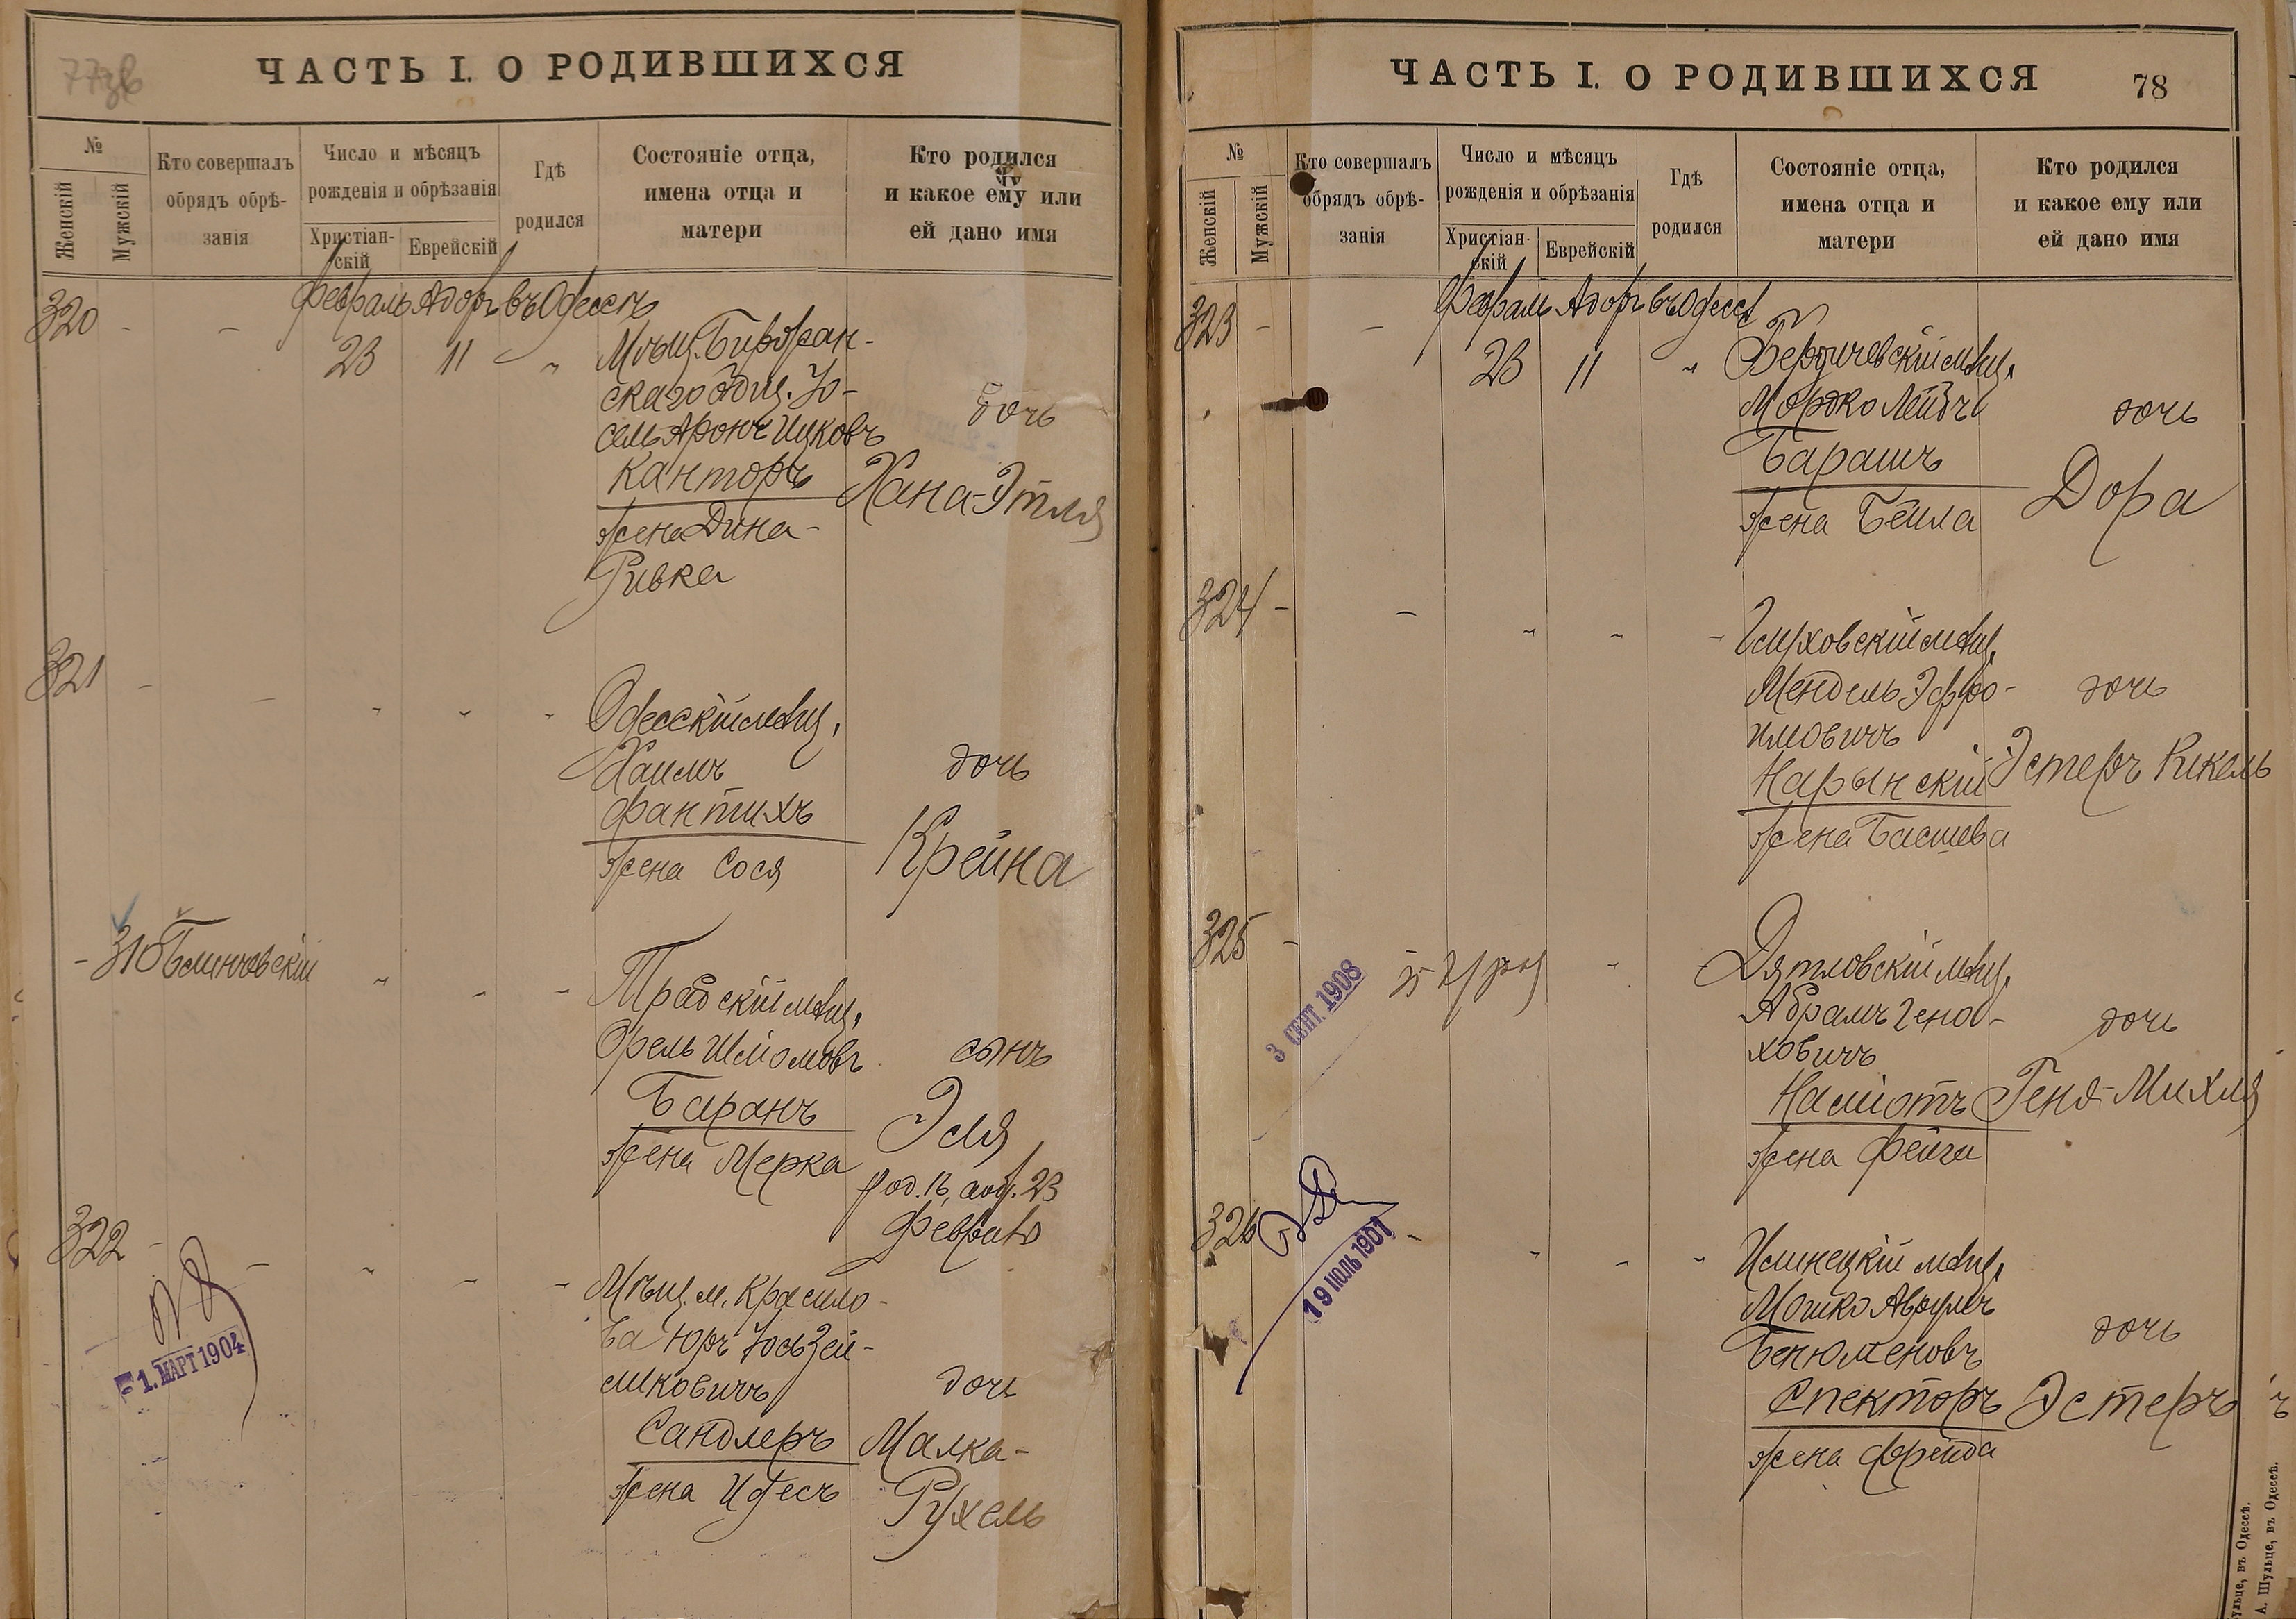 ЧАСТЬ I. О РОДИВШИХСЯ
№
Женскій
Мужскій
Кто совершалъ
обрядъ обрѣ-
занія
Число и мѣсяцъ
рожденія и обрѣзанія
Христіан-
скій
Еврейскій
Гдѣ
родился
Состояніе отца,
имена отца и
матери
Кто родился
и какое ему или
ей дано имя
Февраль Адаръ въ Одессѣ
320 - - 23 11 "
Мѣщ.
скаго Общ. Іо-
сель Аронъ Ицковъ
Канторъ
жена Дина-
Ривка
дочь
Хана-Этля
321 - - " " "
Одесскій мѣщ.
Хаимъ
Фантихъ
жена Сося
дочь
Крейна
- 310 " " "
Орель Шліомовъ
Баранъ
жена Мерка
сынъ
Эля
род. 16, обр. 23
Февраля
322 - - " " "
1. МАРТ 1904
Мѣщ. м. Красило-
ва Юръ Іось Зей-
ликовичъ
Сандлеръ
жена Идесъ
дочь
Малка-
Рухель
ЧАСТЬ I. О РОДИВШИХСЯ
78
№
Женскій
Мужскій
Кто совершалъ
обрядъ обрѣ-
занія
Число и мѣсяцъ
рожденія и обрѣзанія
Христіан-
скій
Еврейскій
Гдѣ
родился
Состояніе отца,
имена отца и
матери
Кто родился
и какое ему или
ей дано имя
Февраль Адаръ въ Одессѣ
323 - - 23 11 "
Бердичевскій мѣщ.
Мордко Лейбъ
Барашъ
жена Бейла
дочь
Дора
324 - - " " "
Глуховскій мѣщ.
Мендель Эфро-
имовичъ
Нарынскій
жена Басшева
дочь
Эстеръ Рикель
325 -
3 СЕНТ. 1908
Дятловскій мѣщ.
Абрамъ Гено-
ховичъ
Наміотъ
жена Фейги
дочь
Геня-Михля
326 - " " "
19 ІЮЛЬ 1907
Илинецкій мѣщ.
Мошко Аврумъ
Бенюменовъ
Спекторъ
жена Фрейда
дочь
Эстеръ
ульце, въ Одессѣ.
А. Шульце, въ Одессѣ.